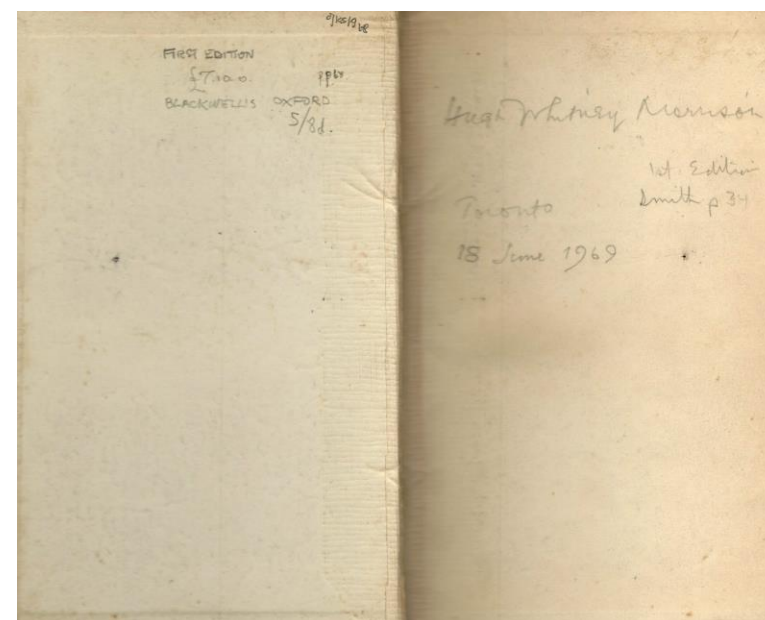 FIRST EDITION
BLACKWELL'S OXFORD
5/8d.
Hugh Whitney Morrison
1st. Edition
Smith p 34
Toronto
18 June 1969